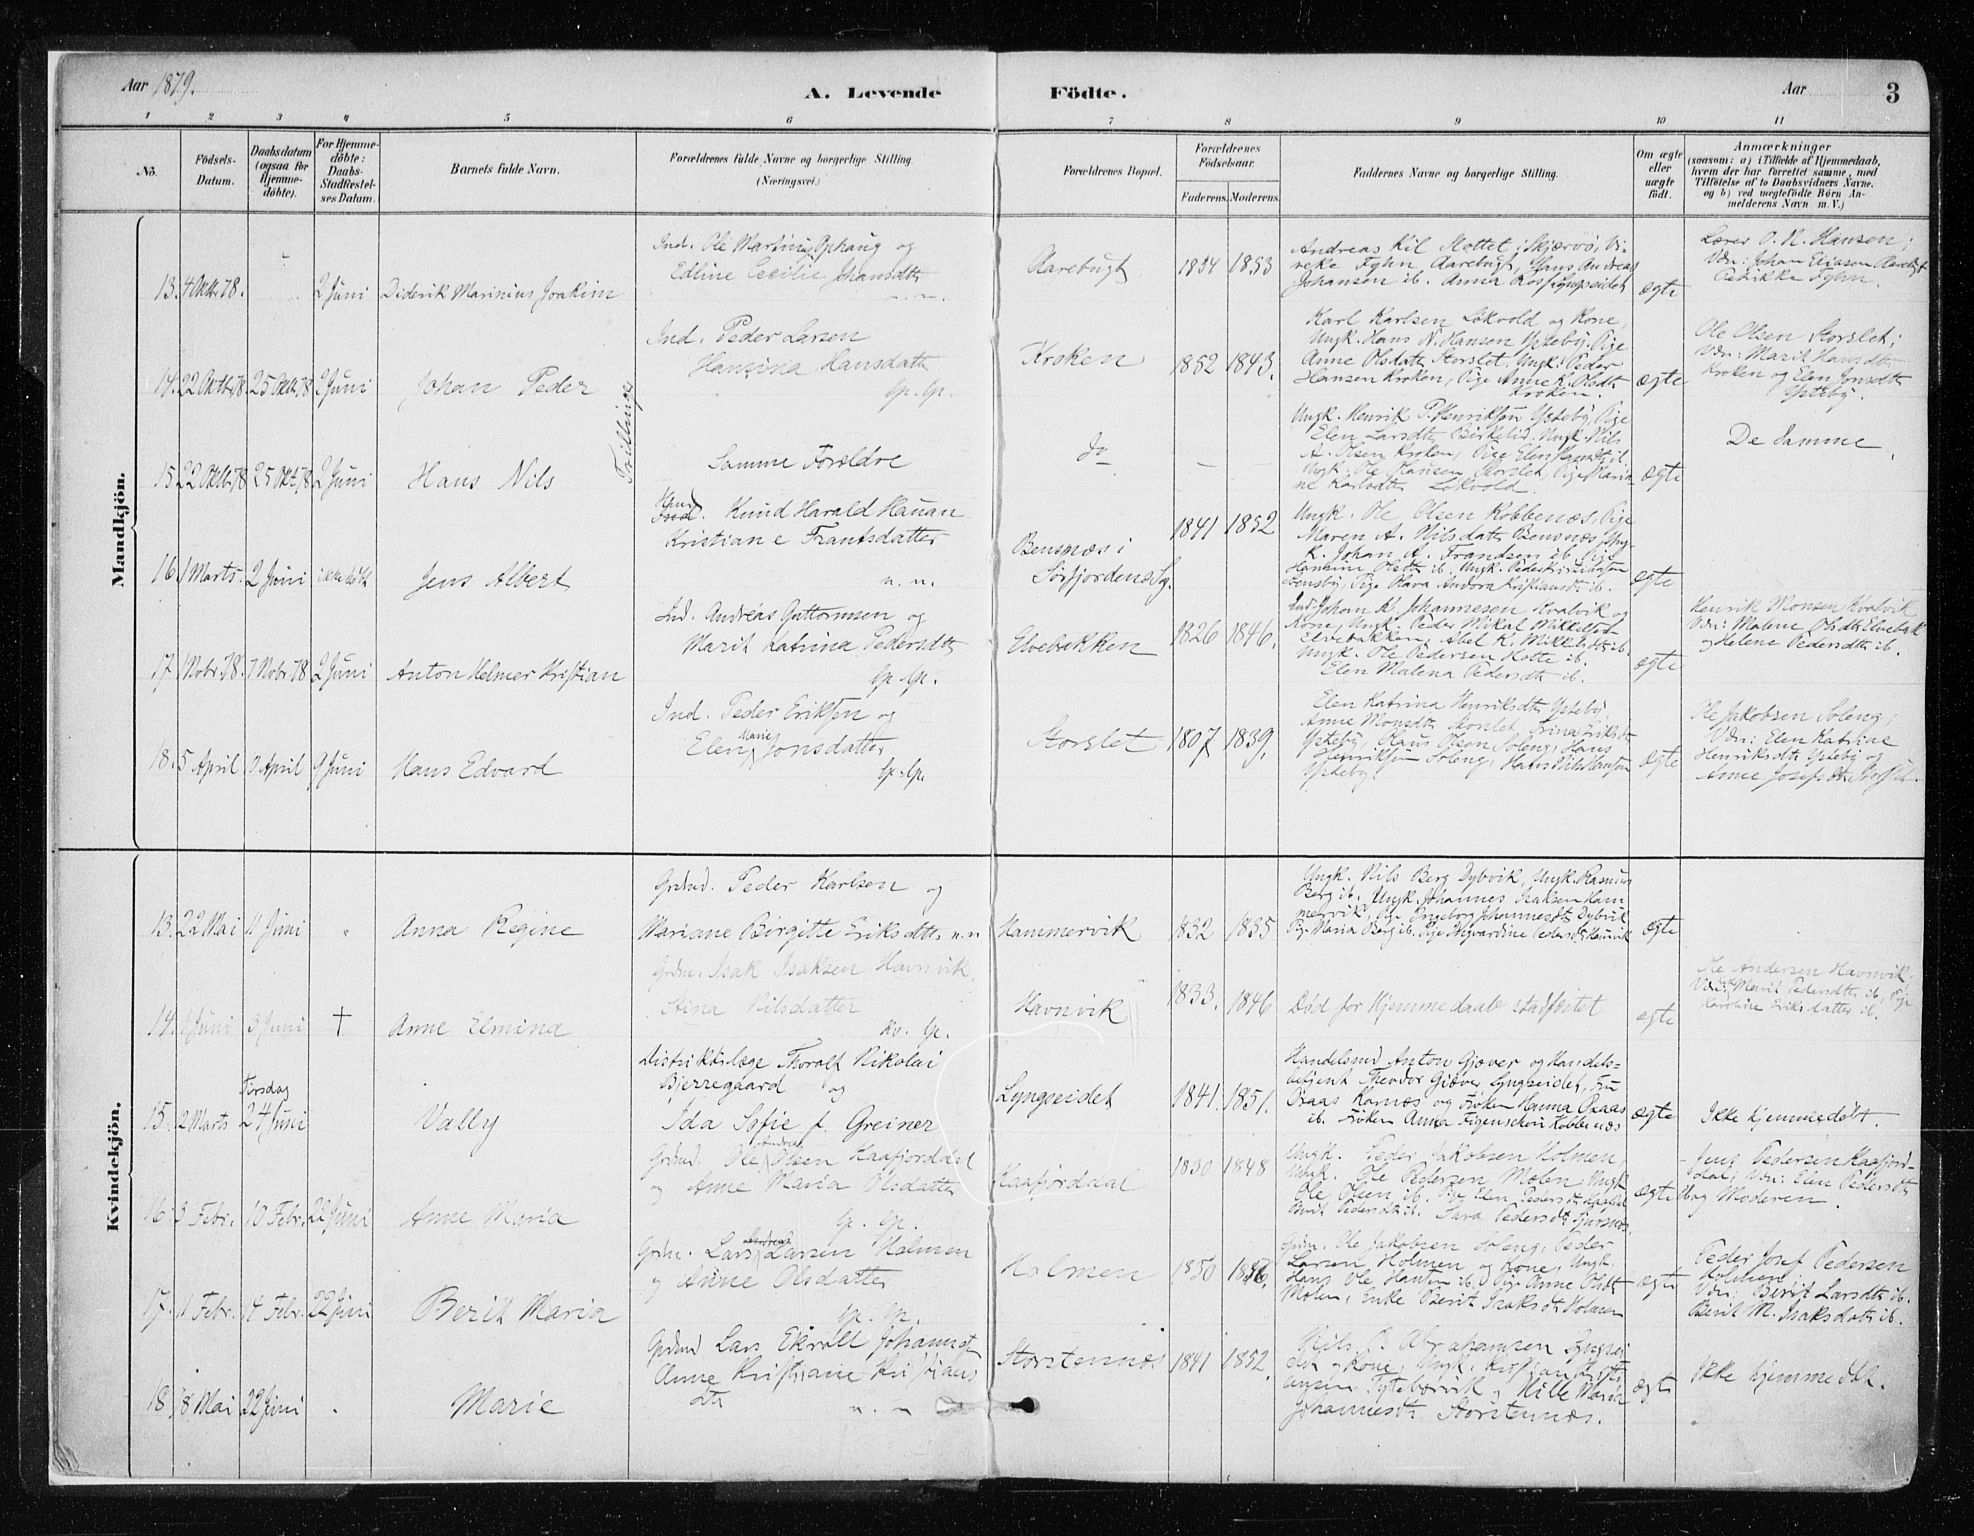 Aar 1879.
A. Levende Födte.
Aar
3
1 2 3 4 5 6 7 8 9 10 11
No.
Födsels-Datum.
Daabsdatum (ogsaa for Hjemme-döbte).
For Hjemme-döbte: Daabs-Stadfæstel-ses Datum.
Barnets fulde Navn.
Forældrenes fulde Navne og borgerlige Stilling. (Næringsvei.)
Forældrenes Bopæl.
Forældrenes Födselsaar.
Faderens. Moderens.
Faddernes Navne og borgerlige Stilling.
Om ægte eller uægte født.
Anmærkninger
(saasom: a) i Tilfælde af Hjemmedaab,
hvem der har forrettet samme, med
Tilföielse af to Daabsvidners Navne,
og b) ved uegtefödte Börn An-
melderens Navn m. V.)
Mandkjön.
13. 4 Oktr 78. 2 Juni Diderik Marinius Joakim
Ind. Ole Martinus Ophaug og
Edline Cecilie Johansdttr
n.n.
Aarebugt 1854 1853
Andreas Kil Slottet, Skjærvö,
Fyhn Aarebugt, Hans Andreas
Johansen ib. Anna
ægte
Lærer O. N. Hansen;
Vdn: Johan Eriksen Aarebugt
Fyhn.
14. 22 Oktr 78. 25 Oktr 78 2 Juni Johan Peder
Tvillinger
Ind. Peder Larsen
Hansina Hansdattr
Gp. Gp.
Kroken 1852 1843.
Karl Karlsen Lökvold og Kone,
Ungk. Hans N. Hansen Ysteby, Pige
Anne Olsdattr Storslet, Ungk. Peder
Hansen Kroken, Pige Anne K. Olsdtr
Kroken.
ægte
Ole Olsen Storslet;
Vdn: Marit Hansdtr
Kroken og Elen Jonsdtr
Ysteby.
15. 22 Oktr 78 25 Okt 78 2 Juni Hans Nils
Samme Foreldre
Do – –
Ungk. Henrik P. Henriksen Ysteby, Pige
Elen Larsdtr Birkelid, Ungk. Nils
A. Olsen Kroken, Pige Elen Hansdtr ib.
Ungk. Ole Hansen Storslet, Pige Maria-
ne Karlsdtr Lökvold.
ægte
De Samme
16. 1 Marts. 2 Juni ikke döbt Jens Albert
Knud Harald Hauan
Kristiane Frantsdatter
n.n.
Bensnæs i
Sörfjordens Sg. 1841 1852
Ungk. Ole Olsen Kobbenæs, Pige
Maren A. Nilsdatr Bensnæs, Ung-
k. Johan A. Frandsen ib. Pige
Hansine Olsdtr ib. Ungk. Peder
Pige Olava Andora Kristiansdtr ib.
ægte
17. 1 Nobr. 78. 7 Nobr. 78 2 Juni Anton Helmer Kristian
Ind. Andreas Guttormsen og
Marit Katrina Pedersdtr
Gp. Gp.
Elvebakken 1826 1846.
Ind. Johan K. Johannesen Kvalvik og
Kone, Ungk. Peder Mikal Mikkelsen
Elvebakken, Abel K. Mikkelsdtr ib.
Ungk. Ole Pedersen Holte ib.
Elen Malena Pedersdtr ib.
ægte
Henrik Monsen Kvalvik
Vdn: Malene Olsdtr Elvebak
og Helene Pedersdtr ib.
18. 5 April 7 April 9 Juni Hans Edvard
Ind. Peder Eriksen og
Elen Marie Jonsdatter
Gp. Gp.
Storslet 1807 1839.
Elen Katrina Henriksdtr Ysteby,
Anne Monsdtr Storslet, Trina Eriksdtr
Ysteby, Klaus Olsen Soleng, Hans
Henriksen Soleng, Hans Nils Hansen
Ysteby
ægte
Ole Jakobsen Soleng;
Vdn: Elen Katrine
Henriksdtr Ysteby og
Anne Josefsdtr
Kvindekjön.
13. 22 Mai 11 Juni " Anna Regine
Grdmd. Peder Karlsen og
Mariane Birgitte Eriksdttr n.n
Hammervik 1832 1835
Ungk. Nils Berg Dybvik, Ungk. Rasmus
Berg ib. Ungk. Johannes Isaksen Ham-
mervik, Pige Ingeborg Johannesdtr Dybvik
Pige Maria Berg ib. Pige Pedersdtr
ægte
14. 1 Juni 3 Juni † Anne Elmina
Grdm. Isak Isaksen Havnvik,
Stina Nilsdatter
Kv. Gp.
Havnvik 1833. 1846
Död för Hjemmedaab stadfæstet
ægte
Ole Andersen Havnvik.
Vdn: Marit Pedersdtr ib, Pige
Karoline Eriksdatter ib.
15. 2 Marts Torsdag 24 Juni Vally
Distriktslæge Thoralf Nikolai
Bjerregaard og
Ida Sofie f. Greiner
Lyngseidet 1841. 1851.
Handelsmd Anton Giæver og Handels-
betjent Theodor Giæver Lyngseidet, Fru
Praas Karnæs og Fröken Hanna Praas
ib. Fröken Anna Figenschou Kobbenæs
ægte
Ikke hjemmedöbt.
16. 3 Febr. 10 Febr. 22 Juni Anne Maria
Grdmd. Ole Andreas Olsen Kaafjorddal
og Anne Maria Olsdatter
Gp. Gp.
Kaafjorddal 1830 1848
Ungk. Peder Jakobsen Holmen,
Ungk. Ole Pedersen Molen, Ungk
Ole Olsen ib. Pige Elen Pedersdtr
Berit Pedersdtr ib. Sara Pedersdtr
ægte
Jens Pedersen Kaafjord-
dal; Vdn: Elen Pedersdtr
og Moderen.
17. 11 Febr. 14 Febr. 22 Juni Berit Maria
Grdm. Lars Larsen Holmen
og Anne Olsdatter
Gp. Gp.
Holmen 1850 1846.
Grdm. Ole Jakobsen Soleng, Peder
Larsen Holmen og Kone, Ungk.
Hans Ole Hansen ib. Pige Anne Olsdtr
Molen, Enke Berit Isaksdtr Holmen
ægte
Peder Josef Pedersen
Holmen
Vdn: Berit Larsdtr ib.
Berit M. Isaksdatr ib.
18. 8 Mai 22 Juni " Marie
Grdmd Lars Ekroll Johannes
Anne Kristiane Kristians
dtr n.n
Storstennæs 1841 1852.
Nils P. Abrahamsen Lyngsei
det og Kone, Ungk. Kristian
Tyttebærvik, Hille Maria
Johannesdtr Storstennæs.
ægte
Ikke hjemmedöbt.